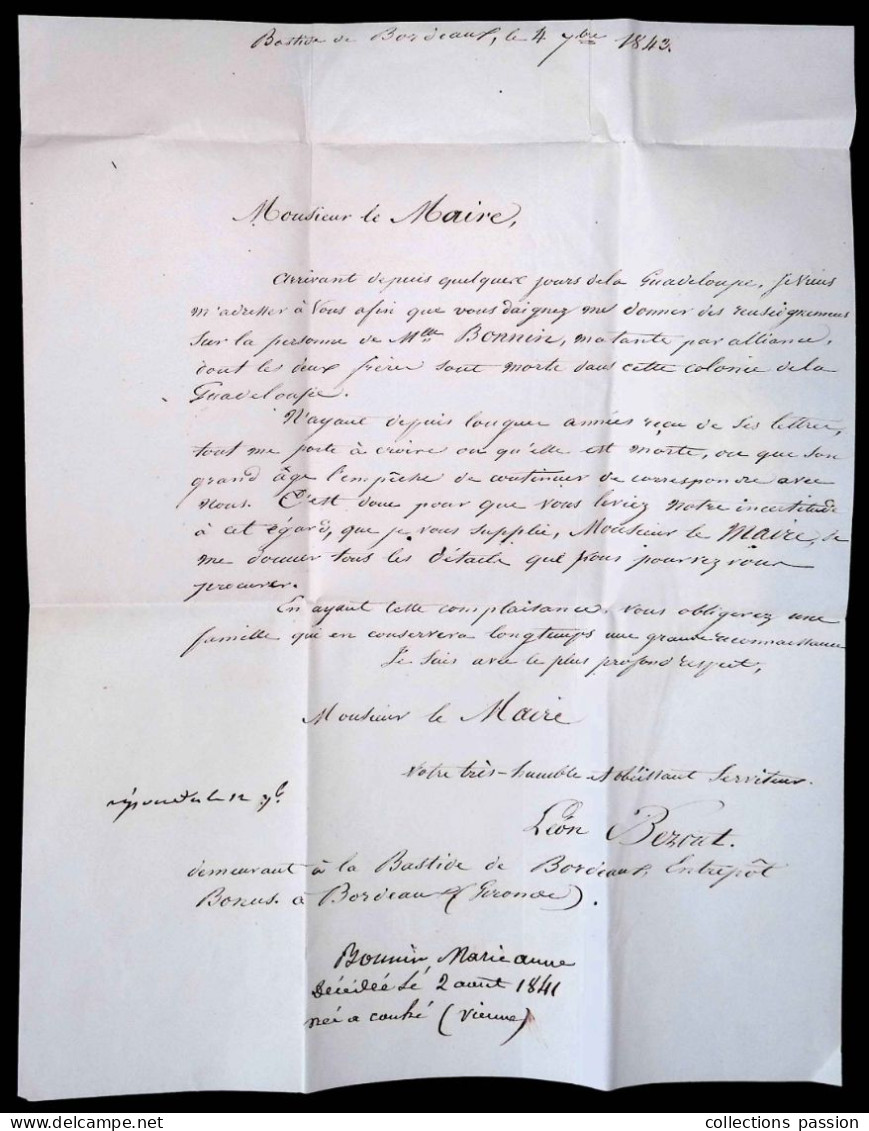 Bastide de Bordeaux, le 4 7bre 1843.
Monsieur le Maire,
Arrivant depuis quelques jours de la Guadeloupe, je viens
m'adresser à Vous afin que vous daignez me donner des renseignemens
Sur la personne de Melle Bonnin, ma tante par alliance,
dont les deux frères sont morts dans cette colonie de la
Guadeloupe.
N'ayant depuis longues années reçu de ses lettres,
tout me porte à croire ou qu'elle est morte, ou que son
grand âge l'empêche de continuer de correspondre avec
Nous. C'est donc pour que vous leviez notre incertitude
à cet égard, que je vous supplie, Monsieur le Maire, de
me donner tous les détails que vous pourrez vous
procurer.
En ayant cette complaisance, vous obligerez une
famille qui en conservera longtemps une grande reconnaissance
Je suis avec le plus profond respect,
Monsieur le Maire
Votre très-humble et obéissant Serviteur.
répondu le 12 7b.
Léon Bezout.
demeurant à la Bastide de Bordeaux, Entrepôt
Bonus. à Bordeaux (Gironde).
Bonnin, Marie anne
Décédée le 2 aout 1841
née a couhé (Vienne)
collections passion